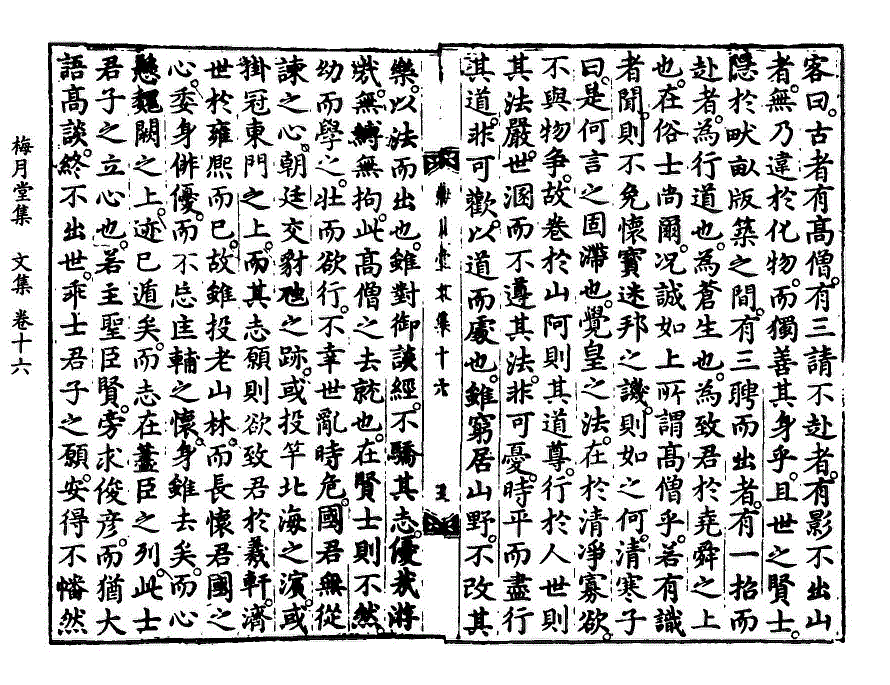 客曰。古者有高僧。有三請不赴者。有影不出山
者。無乃違於化物。而獨善其身乎。且世之賢士。
隱於畎畝版築之間。有三聘而出者。有一招而
赴者。為行道也。為蒼生也。為致君於堯舜之上
也。在俗士尚爾。况誠如上所謂高僧乎。若有識
者聞。則不免懷寶迷邦之譏。則如之何。清寒子
曰。是何言之固滯也。覺皇之法。在於清淨寡欲。
不與物爭。故卷於山阿則其道尊。行於人世則
其法嚴。世溷而不遵其法。非可憂。時平而盡行
其道。非可歡。以道而處也。雖窮居山野。不改其
梅月堂文集十六 五
樂。以法而出也。雖對御談經。不驕其志。優哉游
哉。無縛無拘。此高僧之去就也。在賢士則不然。
幼而學之。壯而欲行。不幸世亂時危。國君無從
諫之心。朝廷交豺虺之跡。或投竿北海之濱。或
掛冠東門之上。而其志願則欲致君於羲軒。濟
世於雍熙而已。故雖投老山林。而長懷君國之
心。委身俳優。而不忘匡輔之懷。身雖去矣。而心
懸魏闕之上。迹已遁矣。而志在藎臣之列。此士
君子之立心也。若主聖臣賢。旁求俊彦。而猶大
語高談。終不出世。乖士君子之願。安得不幡然
梅月堂集 文集 卷十六